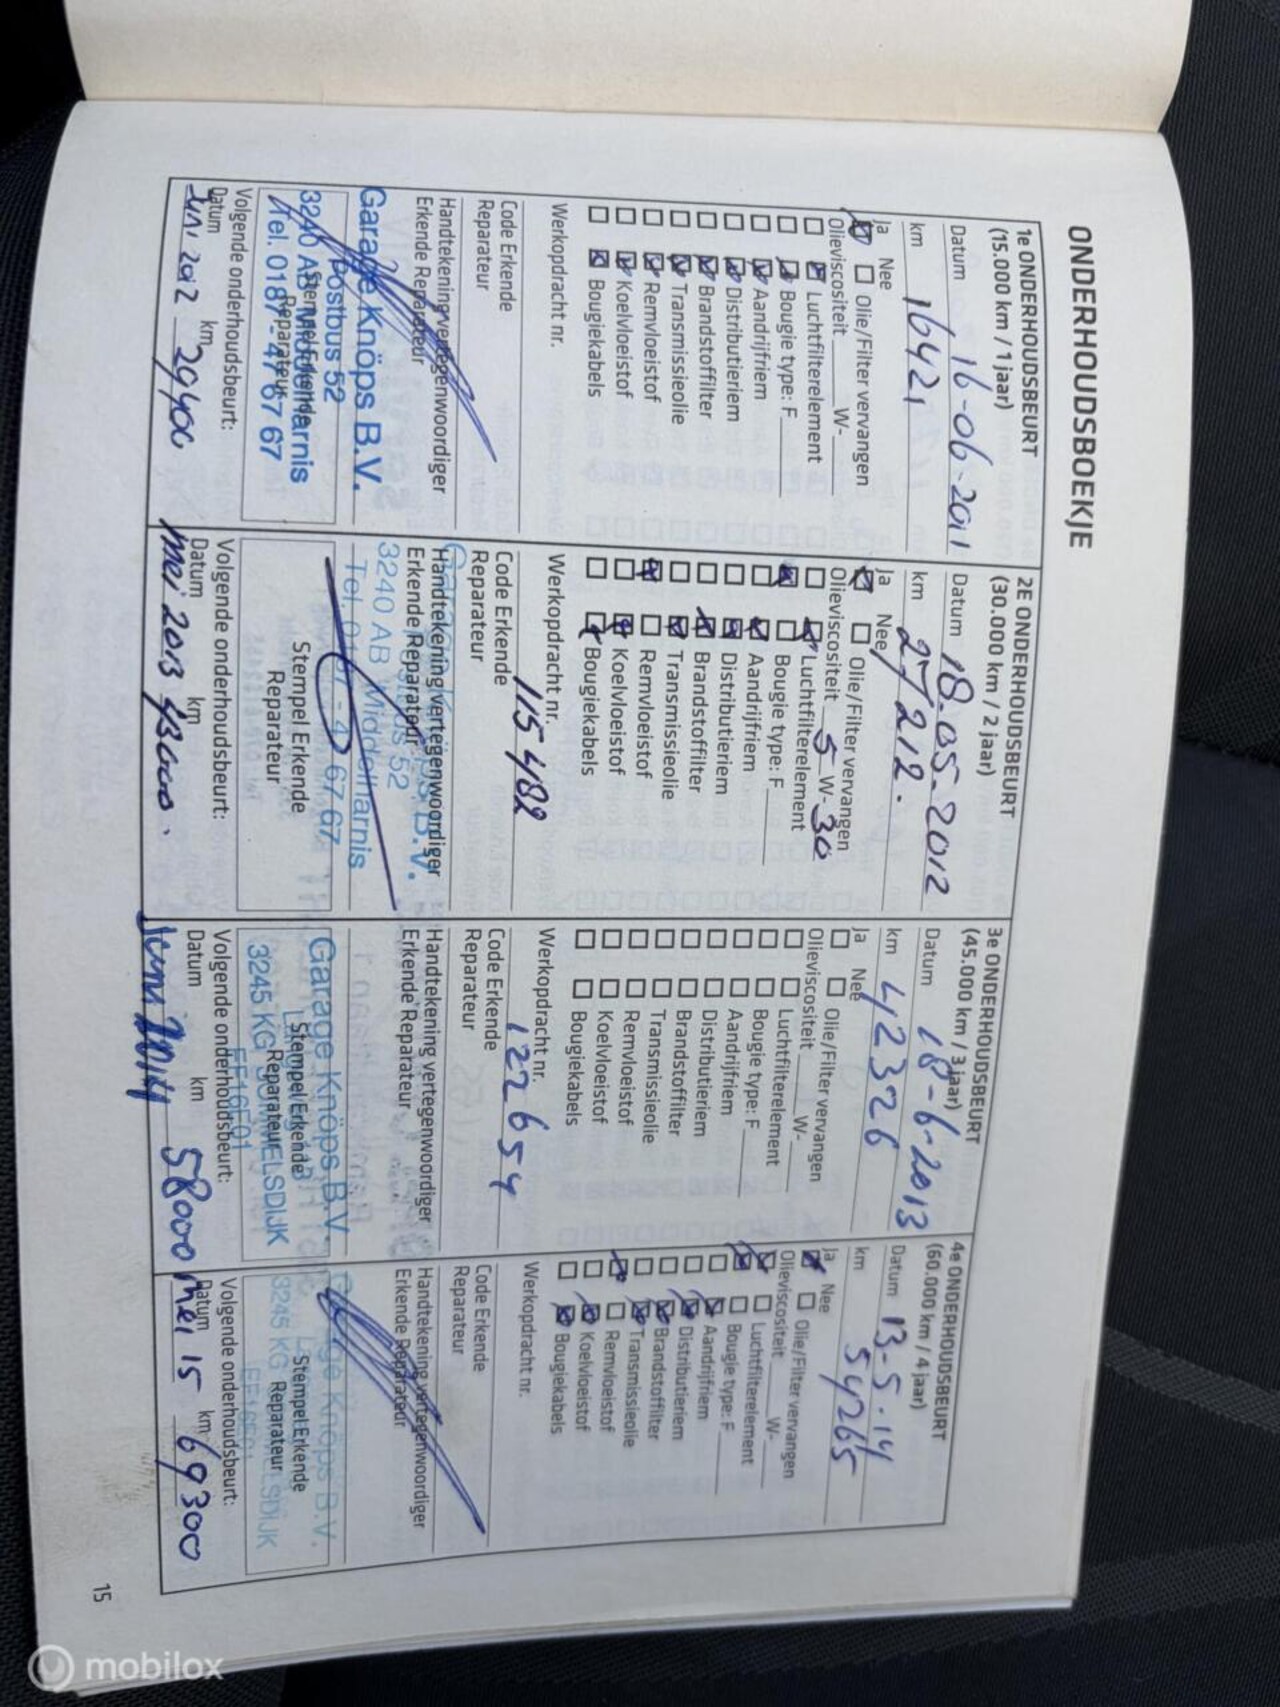 ONDERHOUDSBOEKJE
1e ONDERHOUDSBEURT
(15.000 km / 1 jaar)
Datum 16-06-2011
km 16421
Ja Nee
Olie/Filter vervangen
Olieviscositeit ____ W-____
Luchtfilterelement
Bougie type: F____
Aandrijfriem
Distributieriem
Brandstoffilter
Transmissieolie
Remvloeistof
Koelvloeistof
Bougiekabels
Werkopdracht nr.
Code Erkende
Reparateur
Handtekening vertegenwoordiger
Erkende Reparateur
Garage Knöps B.V.
Postbus 52
3240 AB Middelharnis
Tel. 0187 - 47 67 67
Stempel Erkende
Reparateur
Volgende onderhoudsbeurt:
Datum km
Juni 2012 29400
2E ONDERHOUDSBEURT
(30.000 km / 2 jaar)
Datum 18-05-2012
km 27212.
Ja Nee
Olie/Filter vervangen
Olieviscositeit 5 W-30
Luchtfilterelement
Bougie type: F____
Aandrijfriem
Distributieriem
Brandstoffilter
Transmissieolie
Remvloeistof
Koelvloeistof
Bougiekabels
Werkopdracht nr.
115482
Code Erkende
Reparateur
Handtekening vertegenwoordiger
Erkende Reparateur
Garage Knöps B.V.
Postbus 52
3240 AB Middelharnis
Tel. 0187 - 47 67 67
Stempel Erkende
Reparateur
Volgende onderhoudsbeurt:
Datum km
mei 2013 43000.
3e ONDERHOUDSBEURT
(45.000 km / 3 jaar)
Datum 18-6-2013
km 42326
Ja Nee
Olie/Filter vervangen
Olieviscositeit ____ W-____
Luchtfilterelement
Bougie type: F____
Aandrijfriem
Distributieriem
Brandstoffilter
Transmissieolie
Remvloeistof
Koelvloeistof
Bougiekabels
Werkopdracht nr.
122654
Code Erkende
Reparateur
Handtekening vertegenwoordiger
Erkende Reparateur
Garage Knöps B.V.
3245 KG SOMMELSDIJK
EF16F01
Stempel Erkende
Reparateur
Volgende onderhoudsbeurt:
Datum km
Juni 2014 58000
4e ONDERHOUDSBEURT
(60.000 km / 4 jaar)
Datum 13-5-14
km 54265
Ja Nee
Olie/Filter vervangen
Olieviscositeit ____ W-____
Luchtfilterelement
Bougie type: F____
Aandrijfriem
Distributieriem
Brandstoffilter
Transmissieolie
Remvloeistof
Koelvloeistof
Bougiekabels
Werkopdracht nr.
Code Erkende
Reparateur
Handtekening vertegenwoordiger
Erkende Reparateur
Garage Knöps B.V.
3245 KG SOMMELSDIJK
Stempel Erkende
Reparateur
Volgende onderhoudsbeurt:
Datum km
Mei 15 69300
15
mobilox